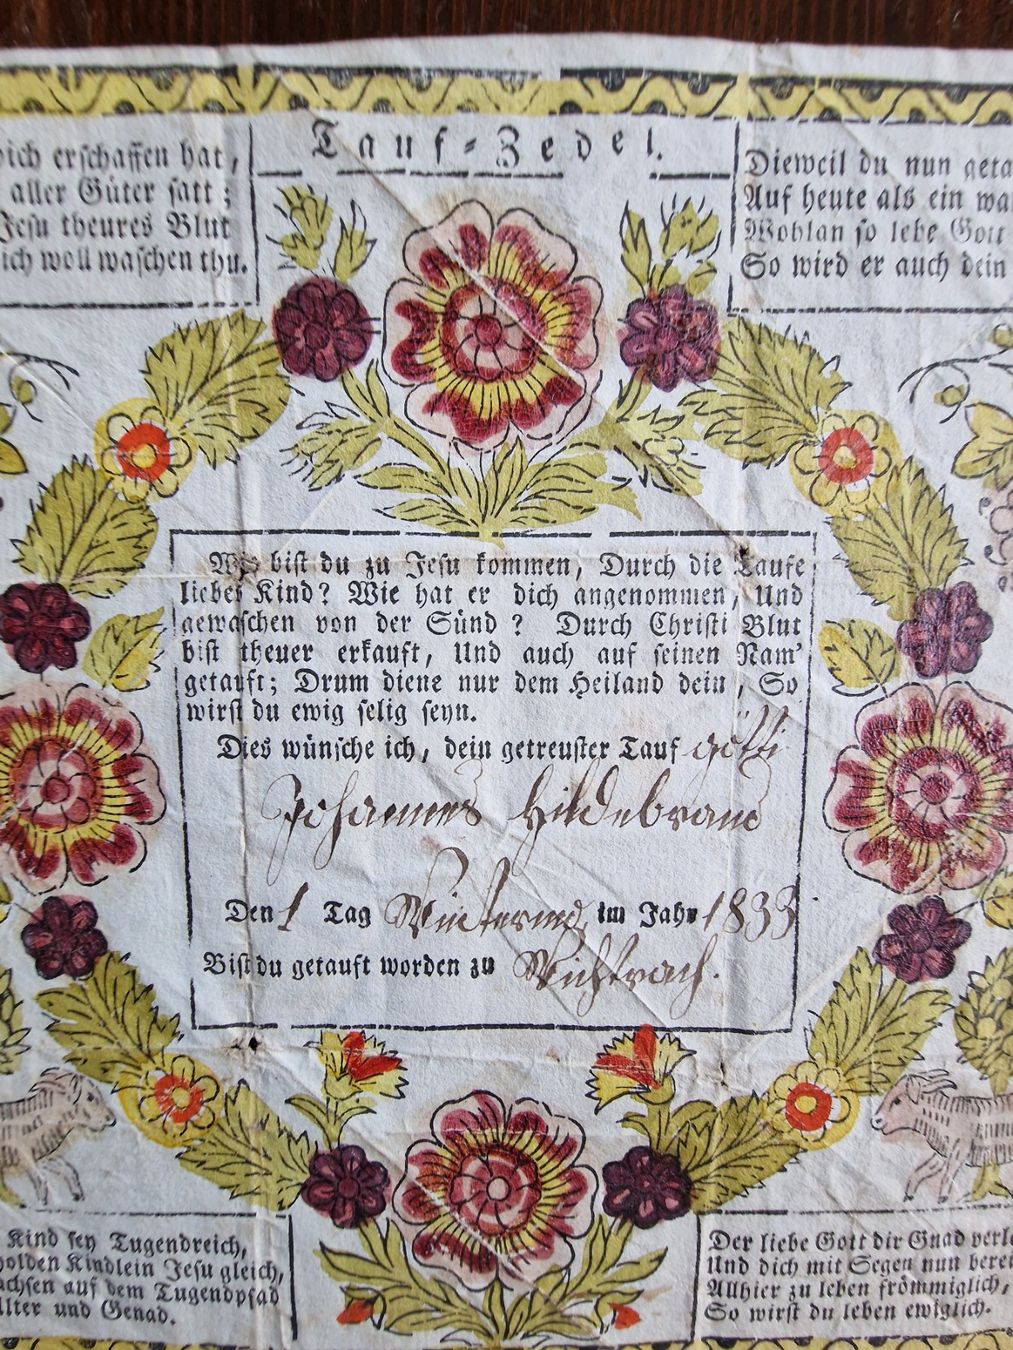 Tauf-Zedel.
dich erschaffen hat,
aller Güter satt;
Jesu theures Blut
dich woll waschen thu.
Dieweil du nun geta
Auf heute als ein wa
Wohlan so lebe Gott
So wird er auch dein
Wo bist du zu Jesu kommen, Durch die Taufe
liebes Kind? Wie hat er dich angenommen, Und
gewaschen von der Sünd? Durch Christi Blut
bist theuer erkauft, Und auch auf seinen Nam'
getauft; Drum diene nur dem Heiland dein, So
wirst du ewig selig seyn.
Dies wünsche ich, dein getreuster Tauf götti
Johannes Hildebrand
Den 1 Tag Winterm. im Jahr 1833
Bist du getauft worden zu Wichtrach.
Kind sey Tugendreich,
holden Kindlein Jesu gleich,
achsen auf dem Tugendpfad
Alter und Genad.
Der liebe Gott dir Gnad verle
Und dich mit Segen nun berei
Allhier zu leben frömmiglich,
So wirst du leben ewiglich.